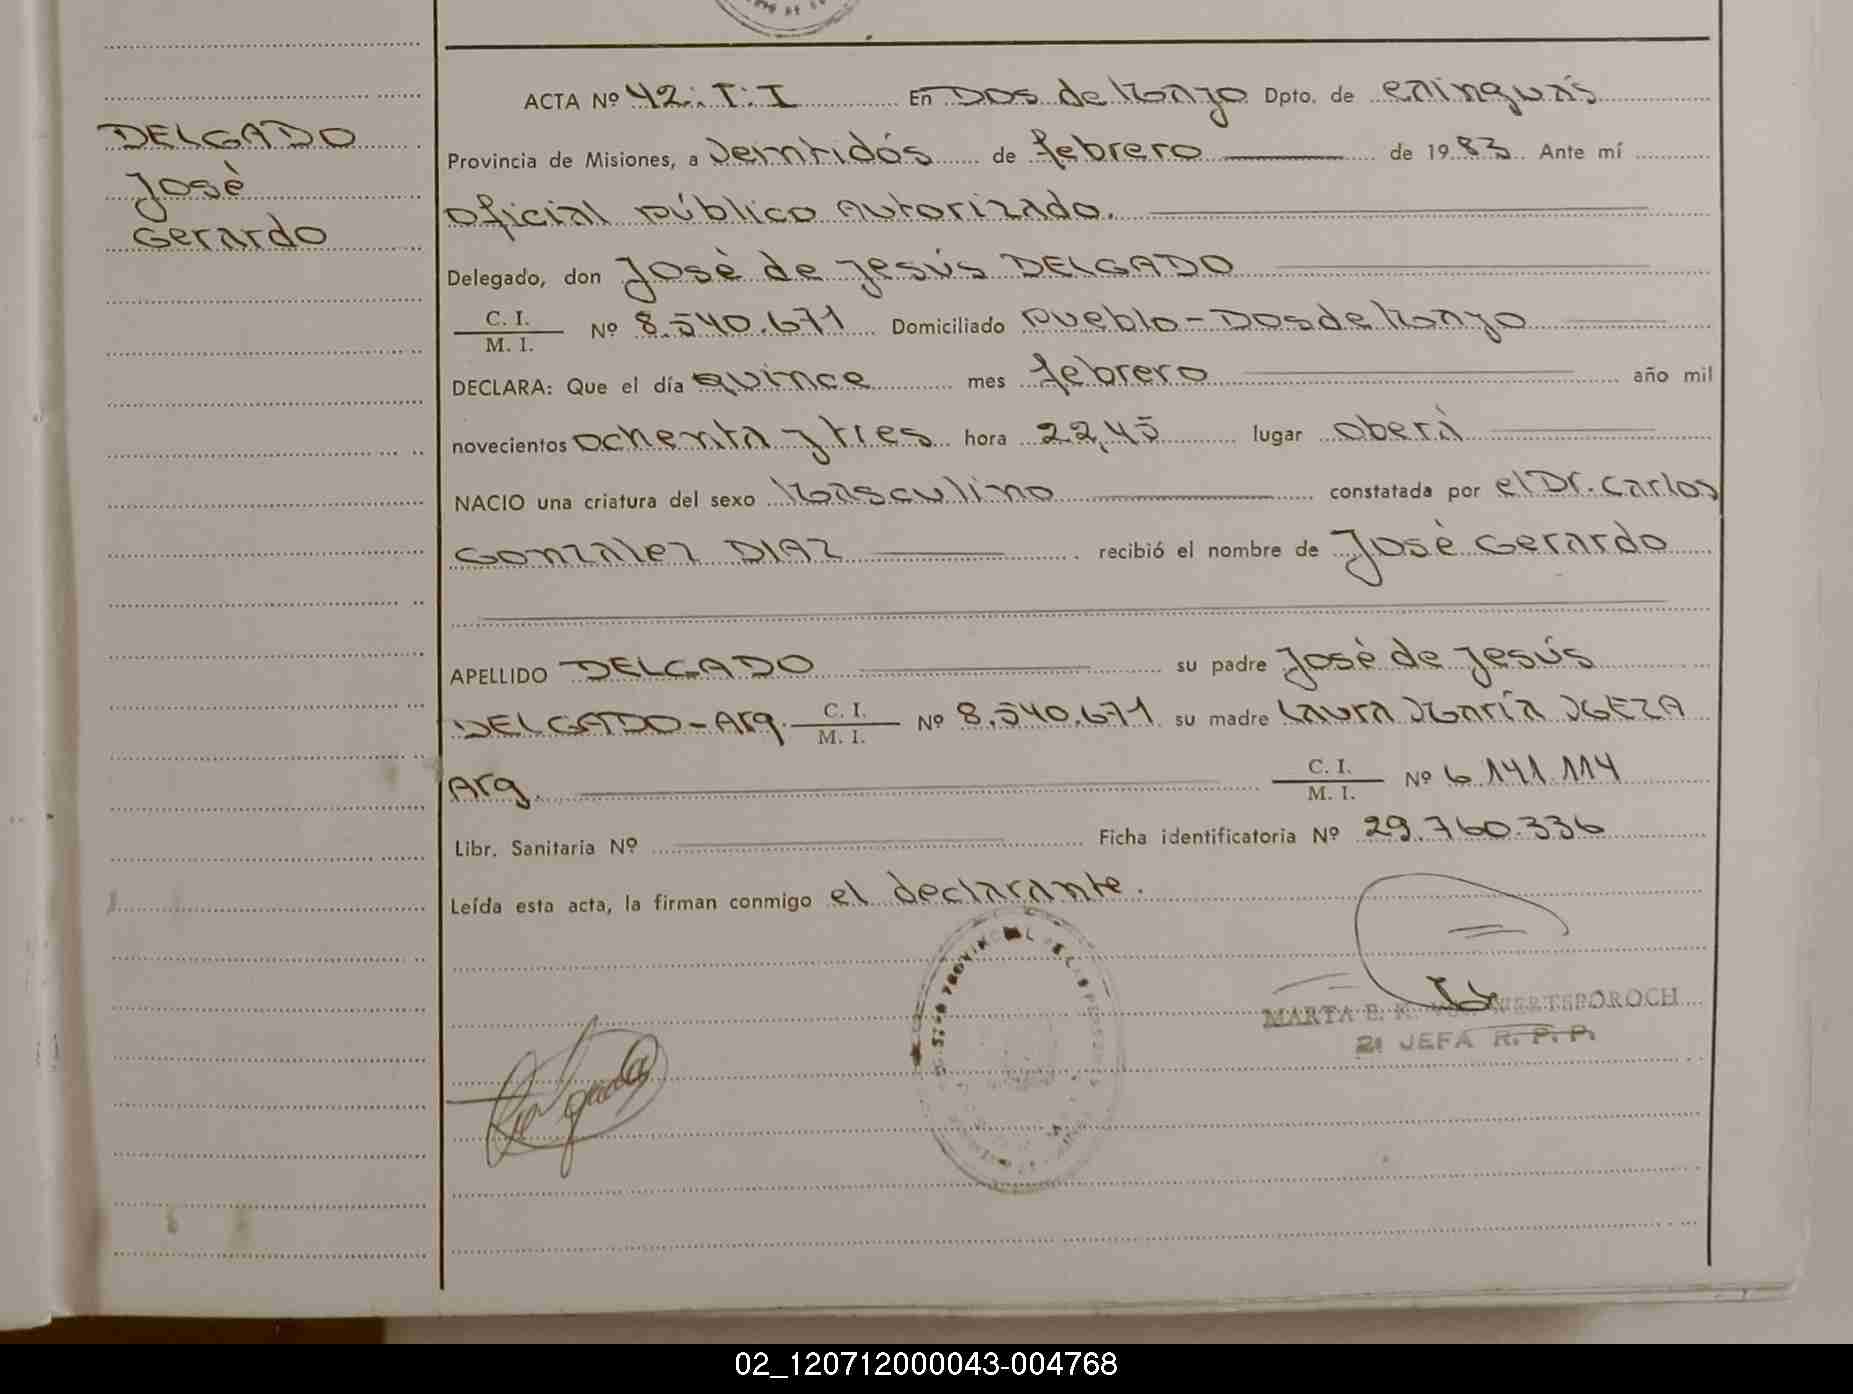 DELGADO
José
Gerardo
ACTA Nº 42. T. I En Dos de Mayo Dpto. de cainguás
Provincia de Misiones, a Veintidós de febrero de 1983 Ante mí
oficial público Autorizado.
Delegado, don José de Jesús DELGADO
C. I.
M. I. Nº 8.540.671 Domiciliado Pueblo - Dos de Mayo
DECLARA: Que el día quince mes febrero año mil
novecientos ochenta y tres hora 22,45 lugar oberá
NACIO una criatura del sexo Masculino constatada por el Dr. Carlos
GONZALEZ DIAZ recibió el nombre de José Gerardo
APELLIDO DELGADO su padre José de Jesús
DELGADO - Arg. C. I.
M. I. Nº 8.540.671 su madre Laura María MEZA
Arg. C. I.
M. I. Nº 6.141.114
Libr. Sanitaria Nº Ficha identificatoria Nº 29.760.336
Leída esta acta, la firman conmigo el declarante.
MARTA E.
2ª JEFA R. P. P.
02_120712000043-004768